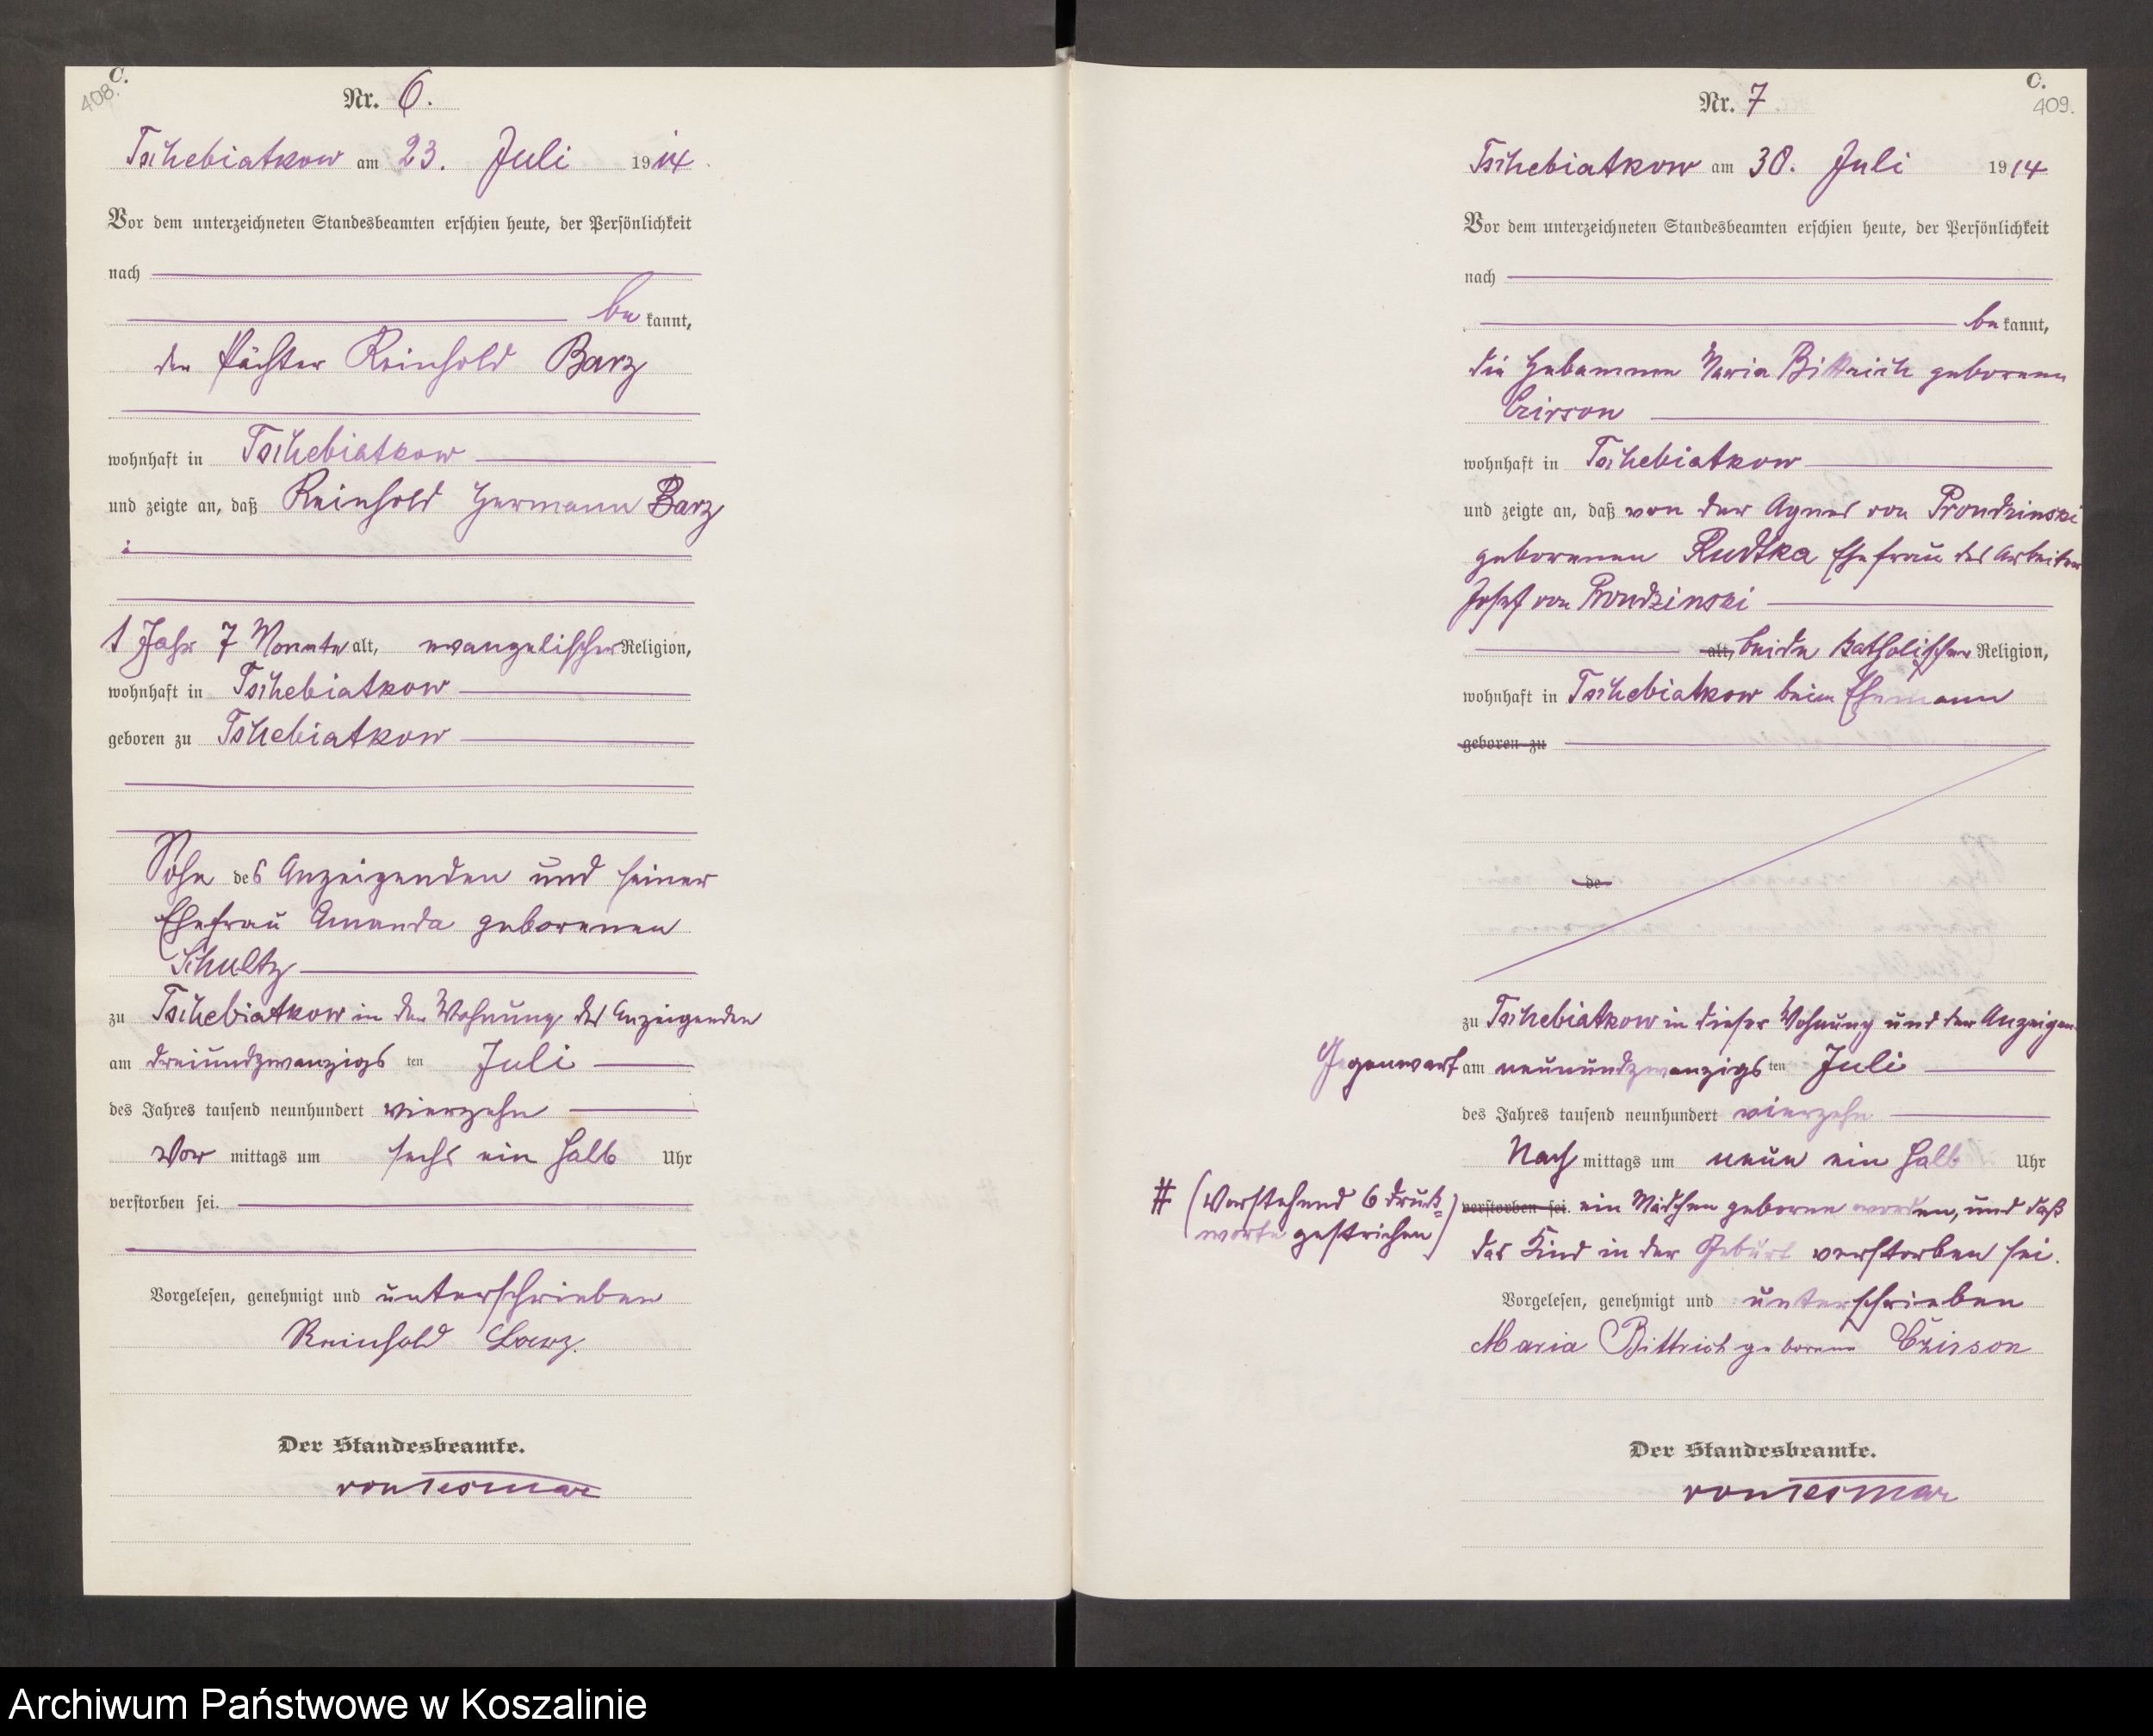 C.
408.
Nr. 6.
Tschebiatkow am 23. Juli 1914
Vor dem unterzeichneten Standesbeamten erschien heute, der Persönlichkeit
nach
bekannt,
der Pächter Reinhold Barz
wohnhaft in Tschebiatkow
und zeigte an, daß Reinhold Hermann Barz
1 Jahr 7 Monate alt, evangelischer Religion,
wohnhaft in Tschebiatkow
geboren zu Tschebiatkow
Sohn des Anzeigenden und seiner
Ehefrau Amanda geborenen
Schultz
zu Tschebiatkow in der Wohnung des Anzeigenden
am dreiundzwanzigsten Juli
des Jahres tausend neunhundert vierzehn
Vor mittags um sechs ein halb Uhr
verstorben sei.
Vorgelesen, genehmigt und unterschrieben
Reinhold Barz.
Der Standesbeamte.
von Tesmar
C.
409.
Nr. 7
Tschebiatkow am 30. Juli 1914
Vor dem unterzeichneten Standesbeamten erschien heute, der Persönlichkeit
nach
bekannt,
die Hebamme Maria Bittrich geborene
Czirson
wohnhaft in Tschebiatkow
und zeigte an, daß von der Agnes von Prondzinski
geborenen Rudtka Ehefrau des Arbeiters
Josef von Prondzinski
alt, beide katholischer Religion,
wohnhaft in Tschebiatkow beim Ehemann
geboren zu
de
zu Tschebiatkow in dieser Wohnung und der Anzeigen
Gegenwart am neunundzwanzigsten Juli
des Jahres tausend neunhundert vierzehn
Nach mittags um neun ein halb Uhr
# (Vorstehend 6 Druck- verstorben sei. ein Mädchen geboren worden, und daß
worte gestrichen) das Kind in der Geburt verstorben sei.
Vorgelesen, genehmigt und unterschrieben
Maria Bittrich geborene Czirson
Der Standesbeamte.
von Tesmar
Archiwum Państwowe w Koszalinie